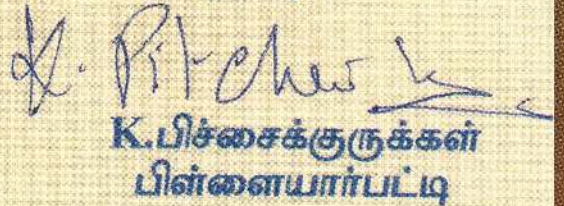 K. Pitchai
K.பிச்சைக்குருக்கள்
பிள்ளையார்பட்டி